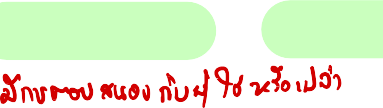 มีการตอบสนอง กับ ฝ ใช่ หรือเปล่า